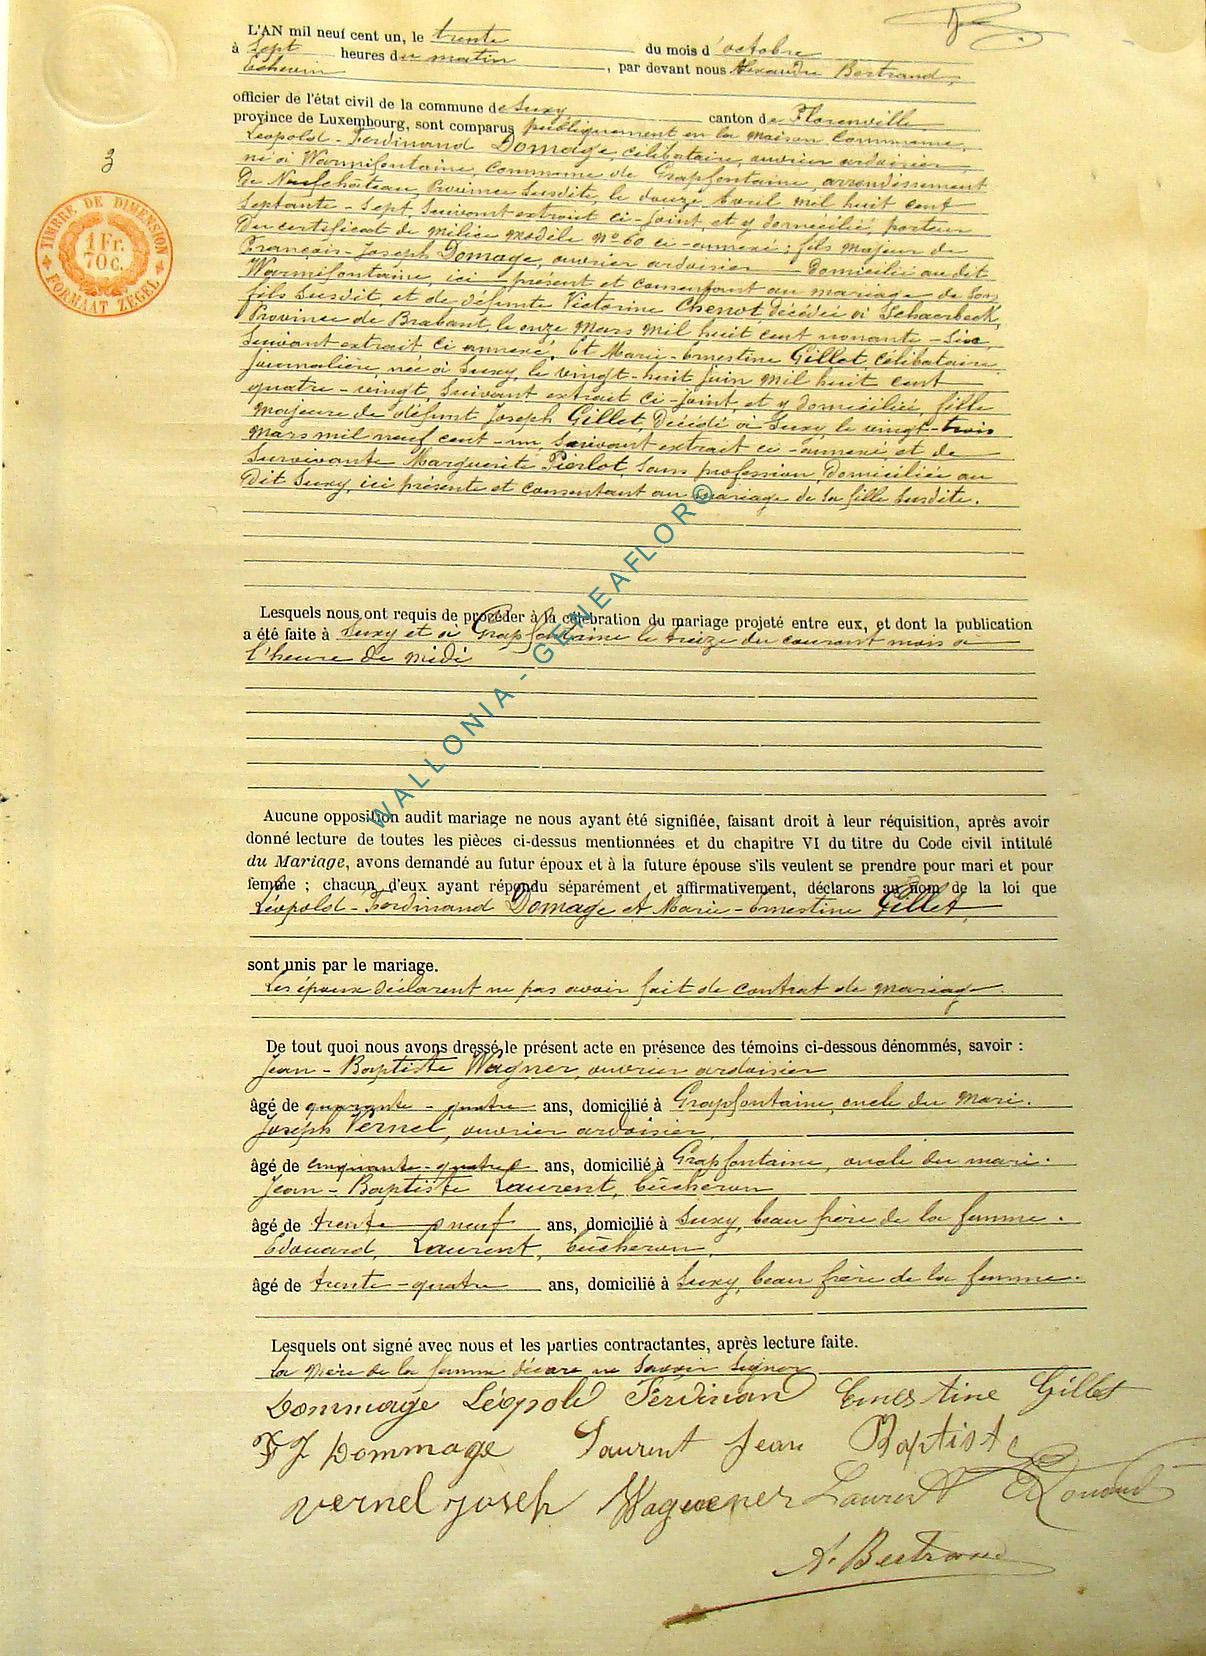 L'AN mil neuf cent un, le trente du mois d'octobre
à Sept heures du matin, par devant nous Alexandre Bertrand,
Echevin
officier de l'état civil de la commune de Suxy canton de Florenville
province de Luxembourg, sont comparus publiquement en la maison Commune,
Léopold-Ferdinand Domage, célibataire, ouvrier ardoisier
né à Warmifontaine, commune de Grapfontaine, arrondissement
De Neufchâteau, Province Susdite, le douze Avril mil huit cent
Septante-Sept, Suivant extrait ci-joint, et y domicilié, porteur
du certificat de milice modèle Nº 60 ci-annexé; fils majeur de
François-Joseph Domage, ouvrier ardoisier Domicilié au dit
Warmifontaine, ici présent et consentant au mariage de Son
fils Susdit, et de défunte Victorine Chenot, décédée à Schaerbeek,
Province de Brabant, le onze Mars mil huit cent nonante-Six,
Suivant extrait ci annexé. Et Marie-Ernestine Gillet, célibataire
journalière née à Suxy, le vingt-huit Juin mil huit cent
quatre-vingt, Suivant extrait ci-joint, et y domiciliée, fille
majeure de défunt Joseph Gillet, Décédé à Suxy, le vingt-trois
Mars mil neuf cent-un, Suivant extrait ci-annexé et de
Survivante Marguerite Pierlot, Sans profession, Domiciliée au
dit Suxy, ici présente et consentant au mariage de Sa fille Susdite.
Lesquels nous ont requis de procéder à la célébration du mariage projeté entre eux, et dont la publication
a été faite à Suxy et à Grapfontaine le treize du courant mois à
l'heure de midi
Aucune opposition audit mariage ne nous ayant été signifiée, faisant droit à leur réquisition, après avoir
donné lecture de toutes les pièces ci-dessus mentionnées et du chapitre VI du titre du Code civil intitulé
du Mariage, avons demandé au futur époux et à la future épouse s'ils veulent se prendre pour mari et pour
femme ; chacun d'eux ayant répondu séparément et affirmativement, déclarons au nom de la loi que
Léopold-Ferdinand Domage et Marie-Ernestine Gillet,
sont unis par le mariage.
Les époux déclarent ne pas avoir fait de contrat de mariage.
De tout quoi nous avons dressé le présent acte en présence des témoins ci-dessous dénommés, savoir :
Jean-Baptiste Wagner, ouvrier ardoisier
âgé de quarante-quatre ans, domicilié à Grapfontaine, oncle du mari.
Joseph Vernel, ouvrier ardoisier,
âgé de cinquante-quatre ans, domicilié à Grapfontaine, oncle du mari.
Jean-Baptiste Laurent, bûcheron
âgé de trente neuf ans, domicilié à Suxy, beau frère de la femme.
Edouard, Laurent, bûcheron,
âgé de trente-quatre ans, domicilié à Suxy, beau frère de la femme.
Lesquels ont signé avec nous et les parties contractantes, après lecture faite.
La mère de la femme déclare ne Savoir Signer
Dommage Léopold Ferdinan Ernestine Gillet
F J Dommage Laurent Jean Baptiste
Vernel joseph Waguener Laurent Edouard
A. Bertrand
3
TIMBRE DE DIMENSION
1 Fr.
70 c.
FORMAAT ZEGEL
WALLONIA - GENEAFLOR©